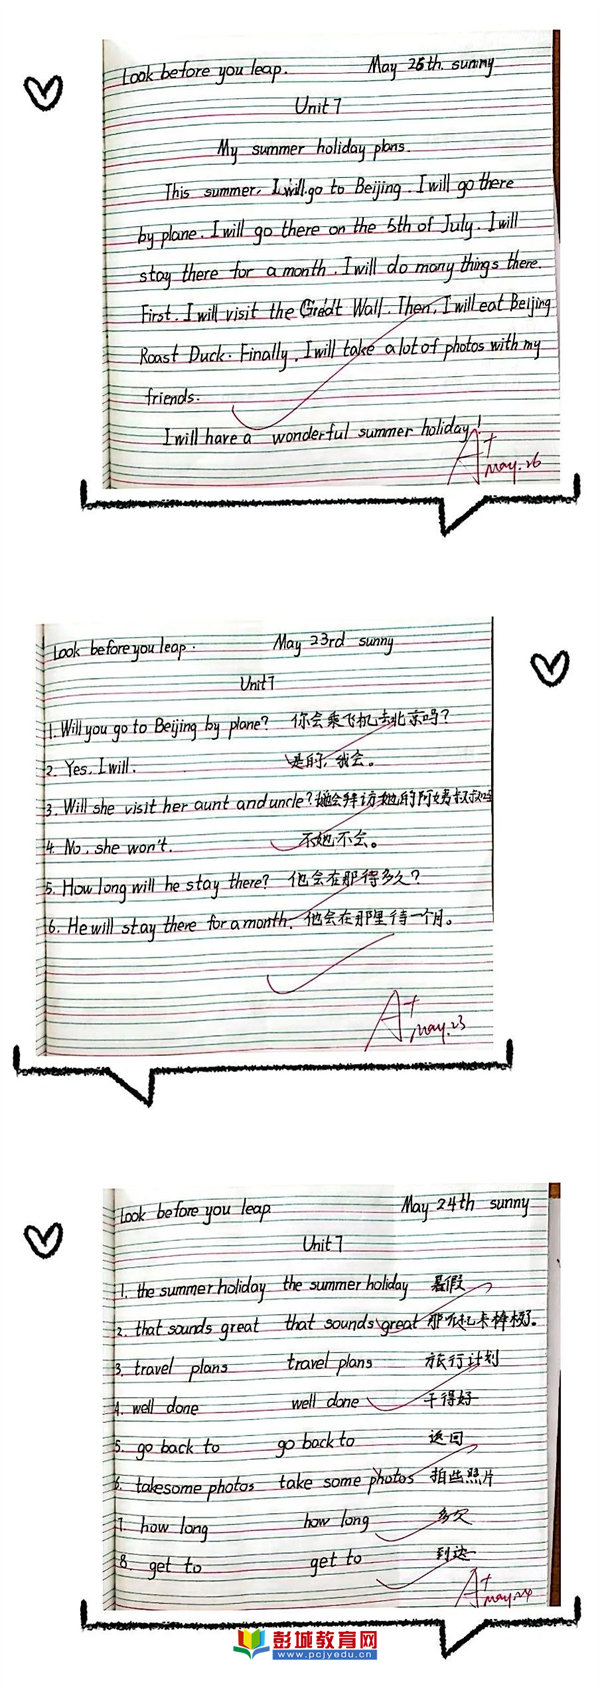 Look before you leap. May 25th. sunny
Unit 7
My summer holiday plans.
This summer, I will go to Beijing. I will go there
by plane. I will go there on the 5th of July. I will
stay there for a month. I will do many things there.
First, I will visit the Great Wall. Then, I will eat Beijing
Roast Duck. Finally, I will take a lot of photos with my
friends.
I will have a wonderful summer holiday!
A+ may.26
Look before you leap. May 23rd sunny
Unit 7
1. Will you go to Beijing by plane? 你会乘飞机去北京吗?
2. Yes, I will. 是的,我会。
3. Will she visit her aunt and uncle? 她会拜访她的阿姨叔叔吗
4. No, she won't. 不她不会。
5. How long will he stay there? 他会在那得多久?
6. He will stay there for a month. 他会在那里待一个月。
A+ may.23
Look before you leap. May 24th sunny
Unit 7
1. the summer holiday the summer holiday 暑假
2. that sounds great that sounds great 那听起来棒极了。
3. travel plans travel plans 旅行计划
4. well done well done 干得好
5. go back to go back to 返回
6. take some photos take some photos 拍些照片
7. how long how long 多久
8. get to get to 到达
A+ may.24
彭城教育网
www.pcjyedu.cn